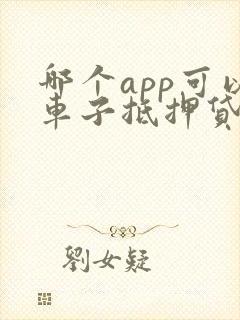 哪个app可以
车子抵押贷
劉女疑